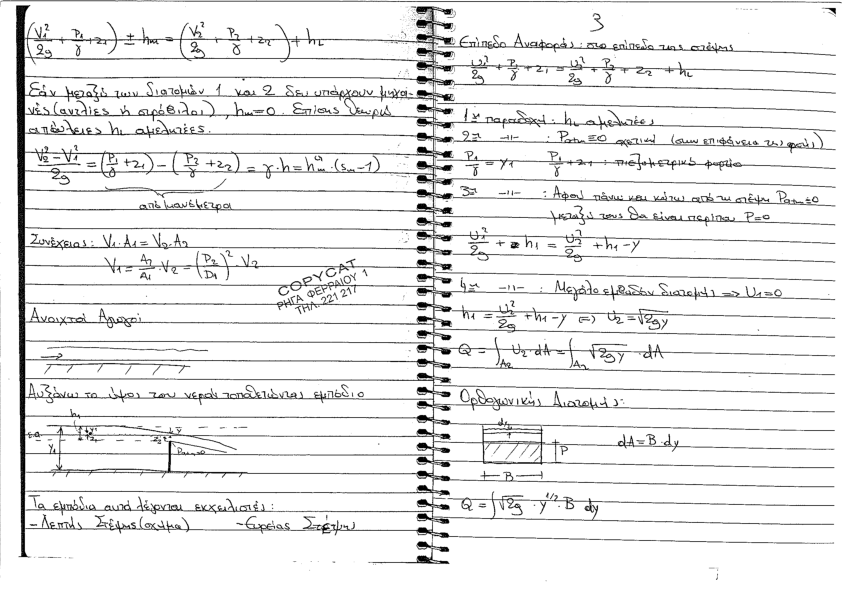 (V₁²/2g + P₁/γ + z₁) ± hₘ = (V₂²/2g + P₂/γ + z₂) + h_L
Εάν μεταξύ των διατομών 1 και 2 δεν υπάρχουν μηχα-
νές (αντλίες ή στρόβιλοι), hₘ=0. Επίσης θεωρώ
απώλειες h_L αμελητέες.
(V₂² - V₁²)/2g = (P₁/γ + z₁) - (P₂/γ + z₂) = γ·h =
από μανόμετρα
Συνέχειας: V₁·A₁ = V₂·A₂
V₁ = A₂/A₁ · V₂ = (D₂/D₁)² · V₂
COPYCAT
ΡΗΓΑ ΦΕΡΡΑΙΟΥ 1
ΤΗΛ. 221 217
Ανοιχτοί Αγωγοί
Αυξάνω το ύψος του νερού τοποθετώντας εμπόδιο
h₁
y₁
Pₐₜₘ=0
Τα εμπόδια αυτά λέγονται εκχειλιστές:
- Λεπτής Στέψης (σχήμα) - Ευρείας Στέψης
3
Επίπεδο Αναφοράς: στο επίπεδο της στέψης
U₁²/2g + P₁/γ + z₁ = U₂²/2g + P₂/γ + z₂ + h_L
1η παραδοχή: h_L αμελητέες
2η -||- : Pₐₜₘ=0 σχετική (στην επιφάνεια της ροής)
P₁/γ = y₁ P₁/γ + z₁ : πιεζομετρικό φορτίο
3η -||- : Αφού πάνω και κάτω από τη στέψη Pₐₜₘ=0
μεταξύ τους θα είναι περίπου P=0
U₁²/2g + h₁ = U₂²/2g + h₁ - y
4η -||- : Μεγάλο εμβαδόν διατομής => U₁=0
h₁ = U₂²/2g + h₁ - y <=> U₂ = √2gy
Q = ∫_A₂ U₂·dA = ∫_A₂ √2gy · dA
Ορθογωνικής Διατομής:
P
B
dA = B·dy
Q = ∫√2g · y^1/2 · B dy